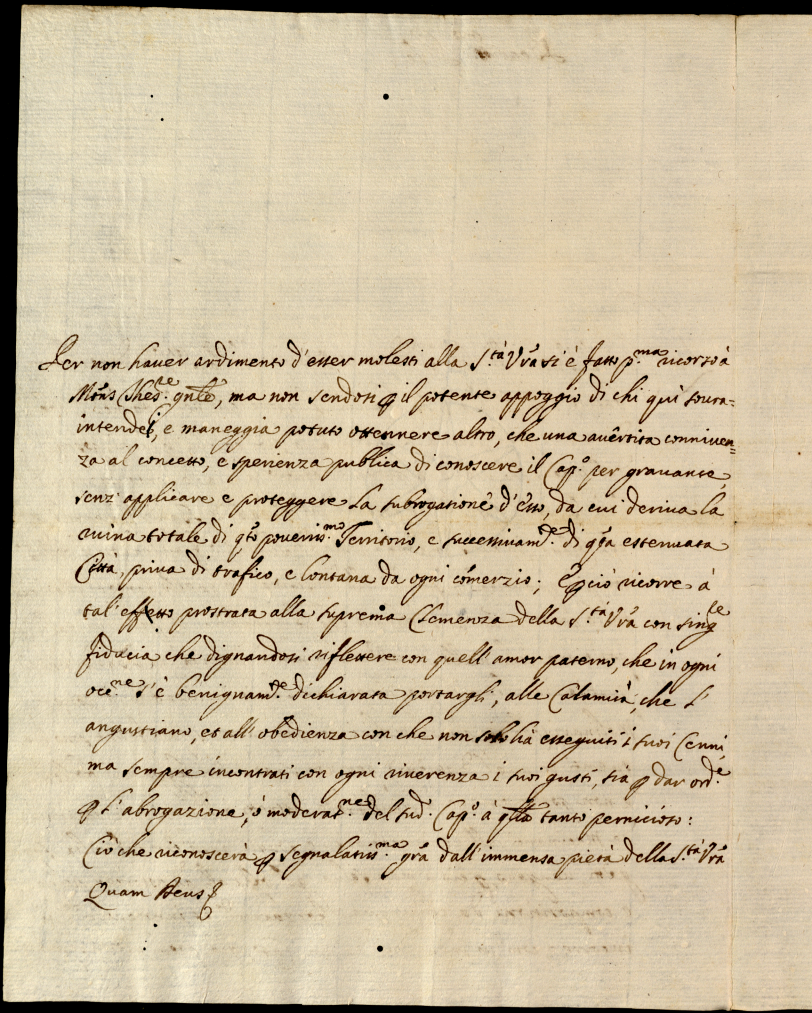 Per non haver ardimento d'esser molesti alla S.tà Vra si è fatto p.ma ricorso à
Mons Thes.re gnle, ma non sendosi p il potente appoggio di chi quì soura=
intende, e maneggia potuto ottennere altro, che una avertita conniven=
za al concetto, e sperienza publica di conoscere il Cap.o per gravante,
senz' applicare e proteggere la subrogatione d'esso, da cui deriva la
ruina totale di qto poveriss.mo Territorio, e successivam.te di qsta estenuata
Città, priva di trafico, e lontana da ogni comerzio; E pciò ricorre à
tal' effetto prostrata alla suprema Clemenza della S.tà Vra con sing.le
fiducia che dignandosi riflettere con quell' amor paterno, che in ogni
occ.ne s'è benignam.te dichiarata portargli, alle Calamità, che l'
angustiano, et all' obedienza con che non solo hà esseguiti i suoi Cenni,
ma sempre incontrati con ogni riverenza i suoi gusti, sia p dar ord.e
p l'abrogazione, ò moderat.ne del sud.o Cap.o à qlla tanto pernicioso:
Ciò che riconoscerà p segnalatiss.ma gra dall' immensa pietà della S.tà Vra
Quam Deus